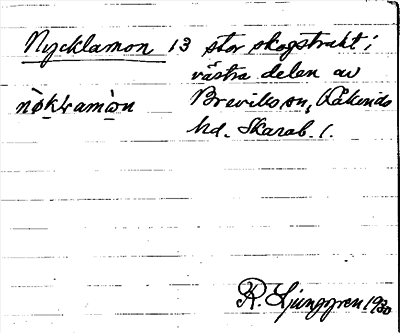 Nycklamon 13 stor skogstrakt i
västra delen av
nò̱kḷamò̱n Breviks sn, Råkends
hd. Skarab. l.
R. Ljunggren 1930